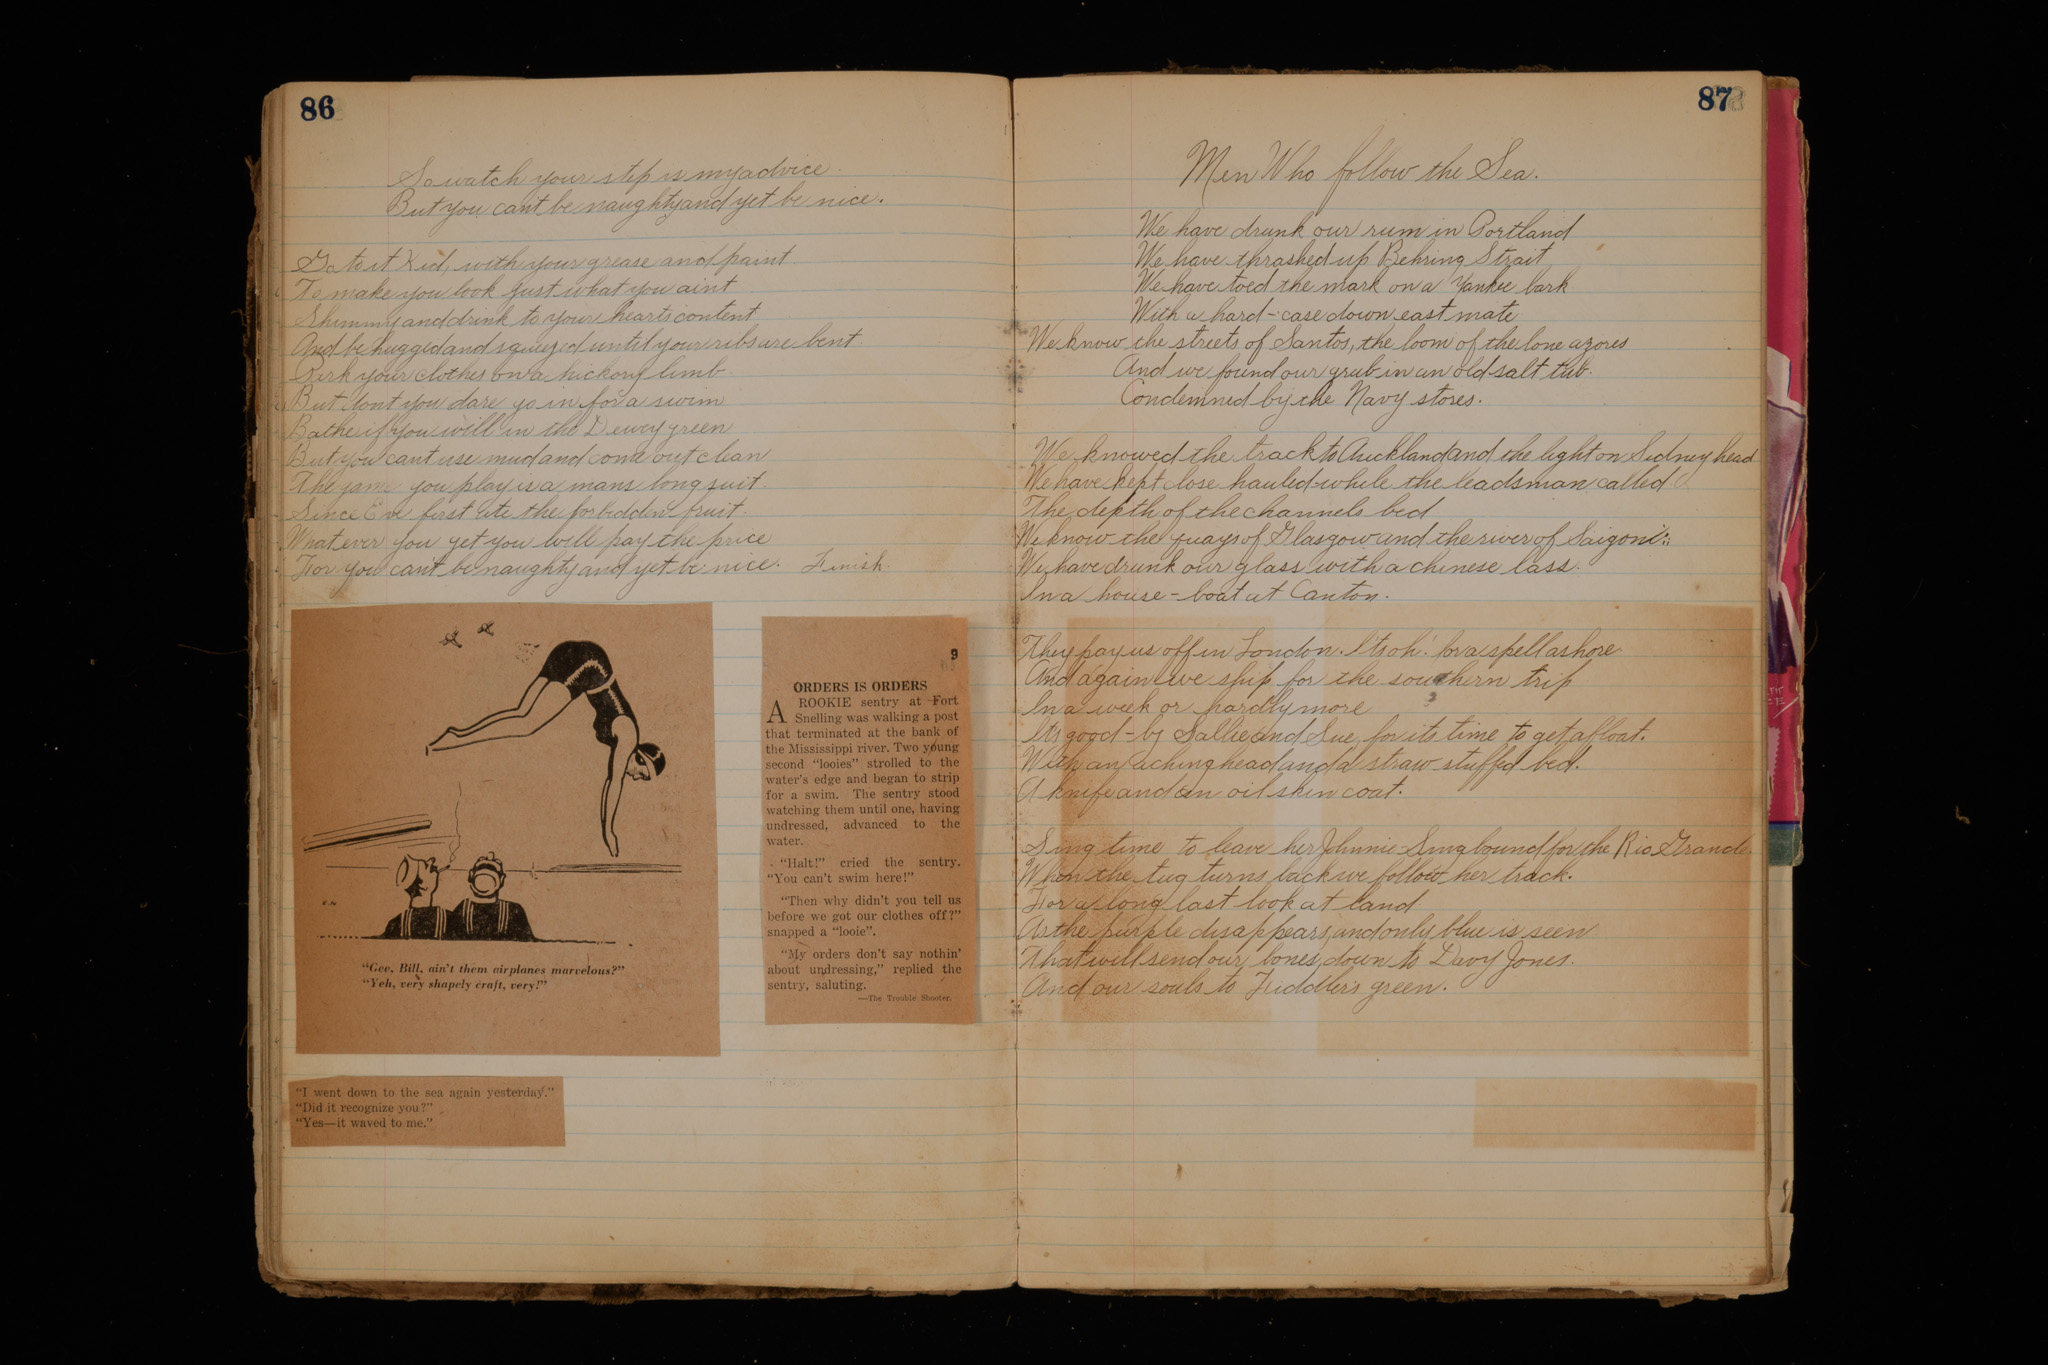 86
So watch your step is my advice.
But you cant be naughty and yet be nice.
Go to it Kid, with your grease and paint
To make you look just what you aint
Shimmy and drink to your hearts content
And be hugged and squeezed until your ribs are bent.
Park your clothes on a hickory limb
But dont you dare go in for a swim
Bathe if you will in the Dewey green
But you cant use mud and come out clean
The game you play is a mans long suit.
Since Eve first ate the forbidden fruit.
What ever you get you will pay the price
For you cant be naughty and yet be nice. Finish.
E.N
"Gee, Bill, ain't them airplanes marvelous?"
"Yeh, very shapely craft, very!"
9
ORDERS IS ORDERS
A ROOKIE sentry at Fort
Snelling was walking a post
that terminated at the bank of
the Mississippi river. Two young
second "looies" strolled to the
water's edge and began to strip
for a swim. The sentry stood
watching them until one, having
undressed, advanced to the
water.
"Halt!" cried the sentry.
"You can't swim here!"
"Then why didn't you tell us
before we got our clothes off?"
snapped a "looie".
"My orders don't say nothin'
about undressing," replied the
sentry, saluting.
—The Trouble Shooter.
"I went down to the sea again yesterday."
"Did it recognize you?"
"Yes—it waved to me."
87
Men Who follow the Sea.
We have drunk our rum in Portland
We have thrashed up Behring Strait
We have toed the mark on a Yankee bark
With a hard-case down east mate
We know the streets of Santos, the loom of the lone azores
And we found our grub in an old salt tub.
Condemned by the Navy stores.
We knowed the track to Auckland and the light on Sidney head
We have kept close hauled while the leadsman called
The depth of the channels bed
We know the quays of Glasgow and the river of Saigon
We have drunk our glass with a chinese lass.
In a house-boat at Canton.
They pay us off in London. Its oh! for a spell ashore
And again we ship for the southern trip
In a week or hardly more
Its good-by Sallie and Sue, for its time to get afloat.
With an aching head and a straw stuffed bed.
A knife and an oil skin coat.
Sing time to leave her Johnnie Sing bound for the Rio Grande
When the tug turns back we follow her track.
For a long last look at land
As the purple disappears, and only blue is seen
That will send our bones down to Davy Jones.
And our souls to Fiddlers green.